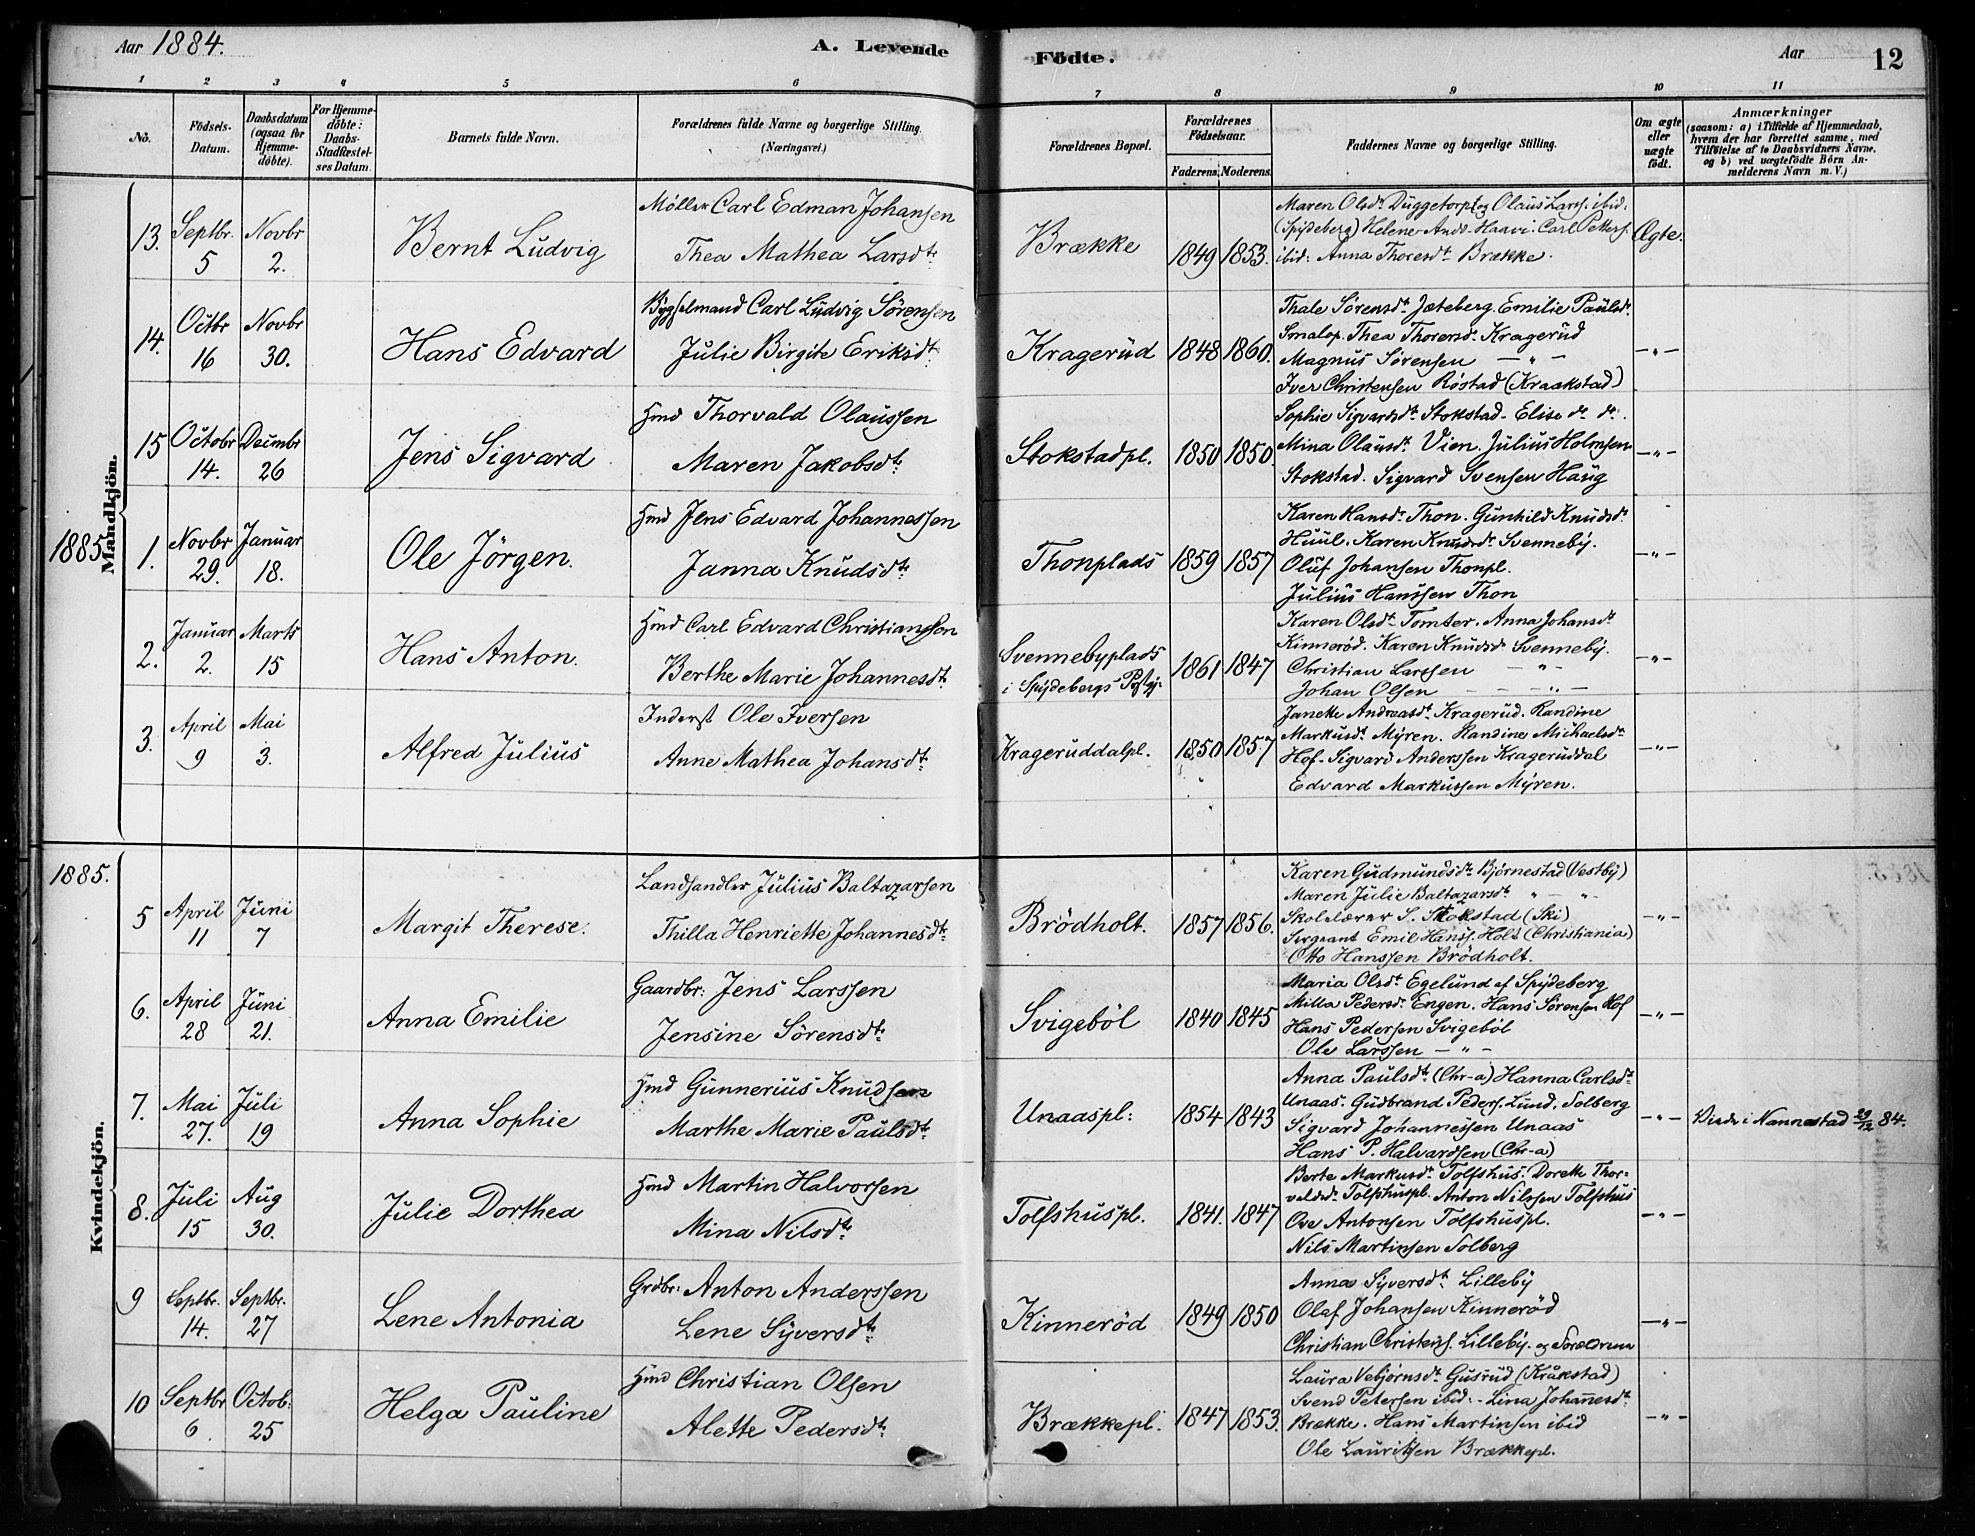 Aar 1884. A. Levende Födte. Aar 12
1 2 3 4 5 6 7 8 9 10 11
No. Födsels-Datum. Daabsdatum (ogsaa for Hjemme-döbte). For Hjemme-döbte: Daabs-Stadfæstel-ses Datum. Barnets fulde Navn. Forældrenes fulde Navne og borgerlige Stilling. (Næringsvei.) Forældrenes Bopæl. Forældrenes Födselsaar. Faderens. Moderens. Faddernes Navne og borgerlige Stilling. Om ægte eller uægte födt. Anmærkninger (saasom: a) i Tilfælde af Hjemmedaab, hvem der har forrettet samme, med Tilföielse af to Daabsvidners Navne, og b) ved uægtefödte Börn An-melderens Navn m. V.)
Mandkjön.
13. Septbr. 5 Novbr 2. Bernt Ludvig Møller Carl Edman Johansen
Thea Mathea Larsdtr. Brække 1849 1853. Maren Olsdtr. Duggetorp og Olaus Larss. ibid:
(Spydeberg) Helene Andr. Haavi. Carl Petters.
ibid: Anna Thoresdtr. Brække. Ægte.
14. Octbr 16 Novbr 30. Hans Edvard Bygselmand Carl Ludvig Sörensen
Julie Birgite Eriksdtr. Kragerud 1848 1860. Thale Sörensdtr. Jæteberg. Emilie Paulsdtr.
Smalop. Thea Thoresd. Kragerud
Magnus Sörensen — " —
Iver Christensen Röstad (Kraakstad) — " —
15 Octobr 14. Decmbr 26 Jens Sigvard Hmd Thorvald Olaussen
Maren Jakobsdtr. Stokstadpl. 1850 1850. Sophie Sigvardsdtr. Stokstad. Elise do do.
Mina Olausdtr. Vien. Julius Holmsen
Stokstad. Sigvard Svensen Haug — " —
1885
1. Novbr 29. Januar 18. Ole Jörgen. Hmd Jens Edvard Johannessen
Janna Knudsdtr. Thonplads 1859 1857 Karen Hansdtr. Thon. Gunhild Knudsdtr.
Huul. Karen Knudsdtr. Svenneby.
Oluf Johansen Thonpl.
Julius Hanssen Thon — " —
2. Januar 2. Marts 15 Hans Anton. Hmd Carl Edvard Christianssen
Berthe Marie Johannesdtr. Svennebyplads
i Spydebergs Pstgj. 1861 1847 Karen Olsdtr. Tomter. Anna Johansdtr.
Kinneröd. Karen Knudsd. Svenneby.
Christian Larssen — " —
Johan Olsen — " — — " —
3. April 9 Mai 3. Alfred Julius Inderst Ole Iversen
Anne Mathea Johansdtr. Krageruddalpl. 1850 1857 Janeke Andreasdtr. Kragerud. Randine
Markusdtr. Myren. Randine Michaelsdtr.
Hof. Sigvard Anderssen Krageruddal
Edvard Markussen Myren. — " —
1885.
Kvindekjön.
5 April 11 Juni 7 Margit Therese. Landhandler Julius Baltazarsen
Thilla Henriette Johannesdtr. Brödholt. 1857 1856. Karen Gudmundsdtr. Björnestad (Vestby)
Maren Julie Baltazarsdtr. " — " —
Skolelærer S. Stokstad (Ski)
Sergeant Emil Hanss. Holt (Christiania)
Otto Hanssen Brödholt. — " —
6. April 28 Juni 21. Anna Emilie Gaardbr: Jens Larssen
Jensine Sörensdtr. Svigeböl 1840 1845 Maria Olsdtr. Egelund af Spydeberg
Milla Pedersdtr. Engen. Hans Sörensen Hof
Hans Pedersen Svigeböl
Ole Larssen — " — — " —
7. Mai 27. Juli 19 Anna Sophie Hmd Gunnerius Knudsen
Marthe Marie Paulsdtr. Unaaspl: 1854 1843 Anna Paulsdtr. (Chr-a) Hanna Carlsdtr.
Unaas. Gudbrand Peders. Lund. Solberg
Sigvard Johannessen Unaas
Hans P. Halvardsen (Chr-a) — " — Viede i Nannestad 29/12 84.
8. Juli 15 Aug 30. Julie Dorthea Hmd Martin Halvorsen
Mina Nilsdtr. Tolfshuspl. 1841. 1847 Berte Markusdtr. Tolfshus. Dorette Thor-
valdsdtr. Tolfshuspl. Anton Nilssen Tolfshus
Ove Antonsen Tolfshuspl.
Nils Martinsen Solberg — " —
9 Septbr. 14. Septbr. 27 Lene Antonia Grdbr: Anton Anderssen
Lene Syversdtr. Kinneröd 1849 1850 Anna Syversdtr. Lilleby
Olaf Johansen Kinneröd
Christian Christens. Lilleby. og Forældrene — " —
10 Septbr 6. Octob. 25 Helga Pauline Hmd Christian Olsen
Alette Pedersdtr. Brækkepl. 1847 1853. Laura Vebjörnsdtr. Gusrud (Kråkstad)
Svend Petersen ibid: - Lina Johanesdtr.
Brække. Hans Martinsen ibid
Ole Lauritzen Brækkepl. — " —